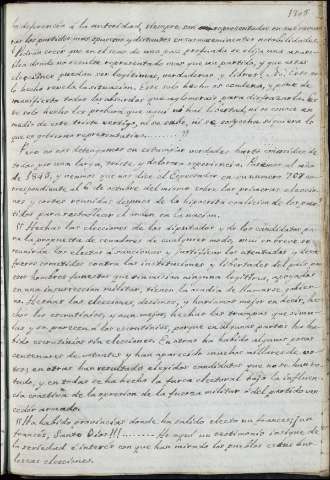 1305
la deferencia á la autoridad, siempre con representados en sus números los partidos mas opuestos y distantes en sus eminentes notabilidades.
¿Podria creer que en el seno de una paz profunda se elija una asamblea donde no resulte representado mas que un partido, y que estas elecciones puedan ser legitimas, verdaderas y libres? ¡No! Este solo hecho revela la situacion. Este solo hecho os condena, y pone de manifiesto todos los absurdos que se para disfrazarlos. Este solo hecho los prohura que aquí no hai libertad, ni se conoce el medio de este triste vestigio, ni se sabe, ni se sospecha siquiera lo que es gobierno representativo. . . . . . . . "
Pero no nos detengamos en estampar verdades harto conocidas de todos por una larga, triste y dolorosa esperiencia. Pasemos al año de 1843, y veamos que nos dice el Espectador en su número 728 correspondiente al 6 de octubre del mismo sobre las primeras elecciones y cortes reunidas despues de la hipócrita coalicion de los partidos para restablecer el órden en la nacion.
"Hechas las elecciones de los diputados y de los candidatos para la propuesta de senadores de cualquier modo, muy en breve se reunirán los electos á sancionar y justificar los atentados y desafueros cometidos contra las instituciones y libertades del pais por esos hombres funestos que sin mision ninguna legitima, apoyados en una insurreccion militar, tienen la osadía de llamarse gobierno. Hechas las elecciones, decimos, y hariamos mejor en decir, hechos los escrutinios, y aun mejor, hechas las trampas que simulan y se parecen á los escrutinios, porque en algunas partes ha habido escrutinios sin elecciones. En otras ha habido algunos pocos centenares de votantes y han aparecido muchos millares de votos; en otras han resultado elegidos candidatos que no se han votado, y en todas se ha hecho la farsa electoral bajo la influencia coactiva de la opresion de la fuerza militar ó del partido vencedor armado.
"Ha habido provincias donde ha salido electo un frances; ¡un frances, Santo Dios!!! . . . . . . . . He aquí un testimonio insigne de la seriedad é interes con que han mirado los pueblos estas burlescas elecciones.